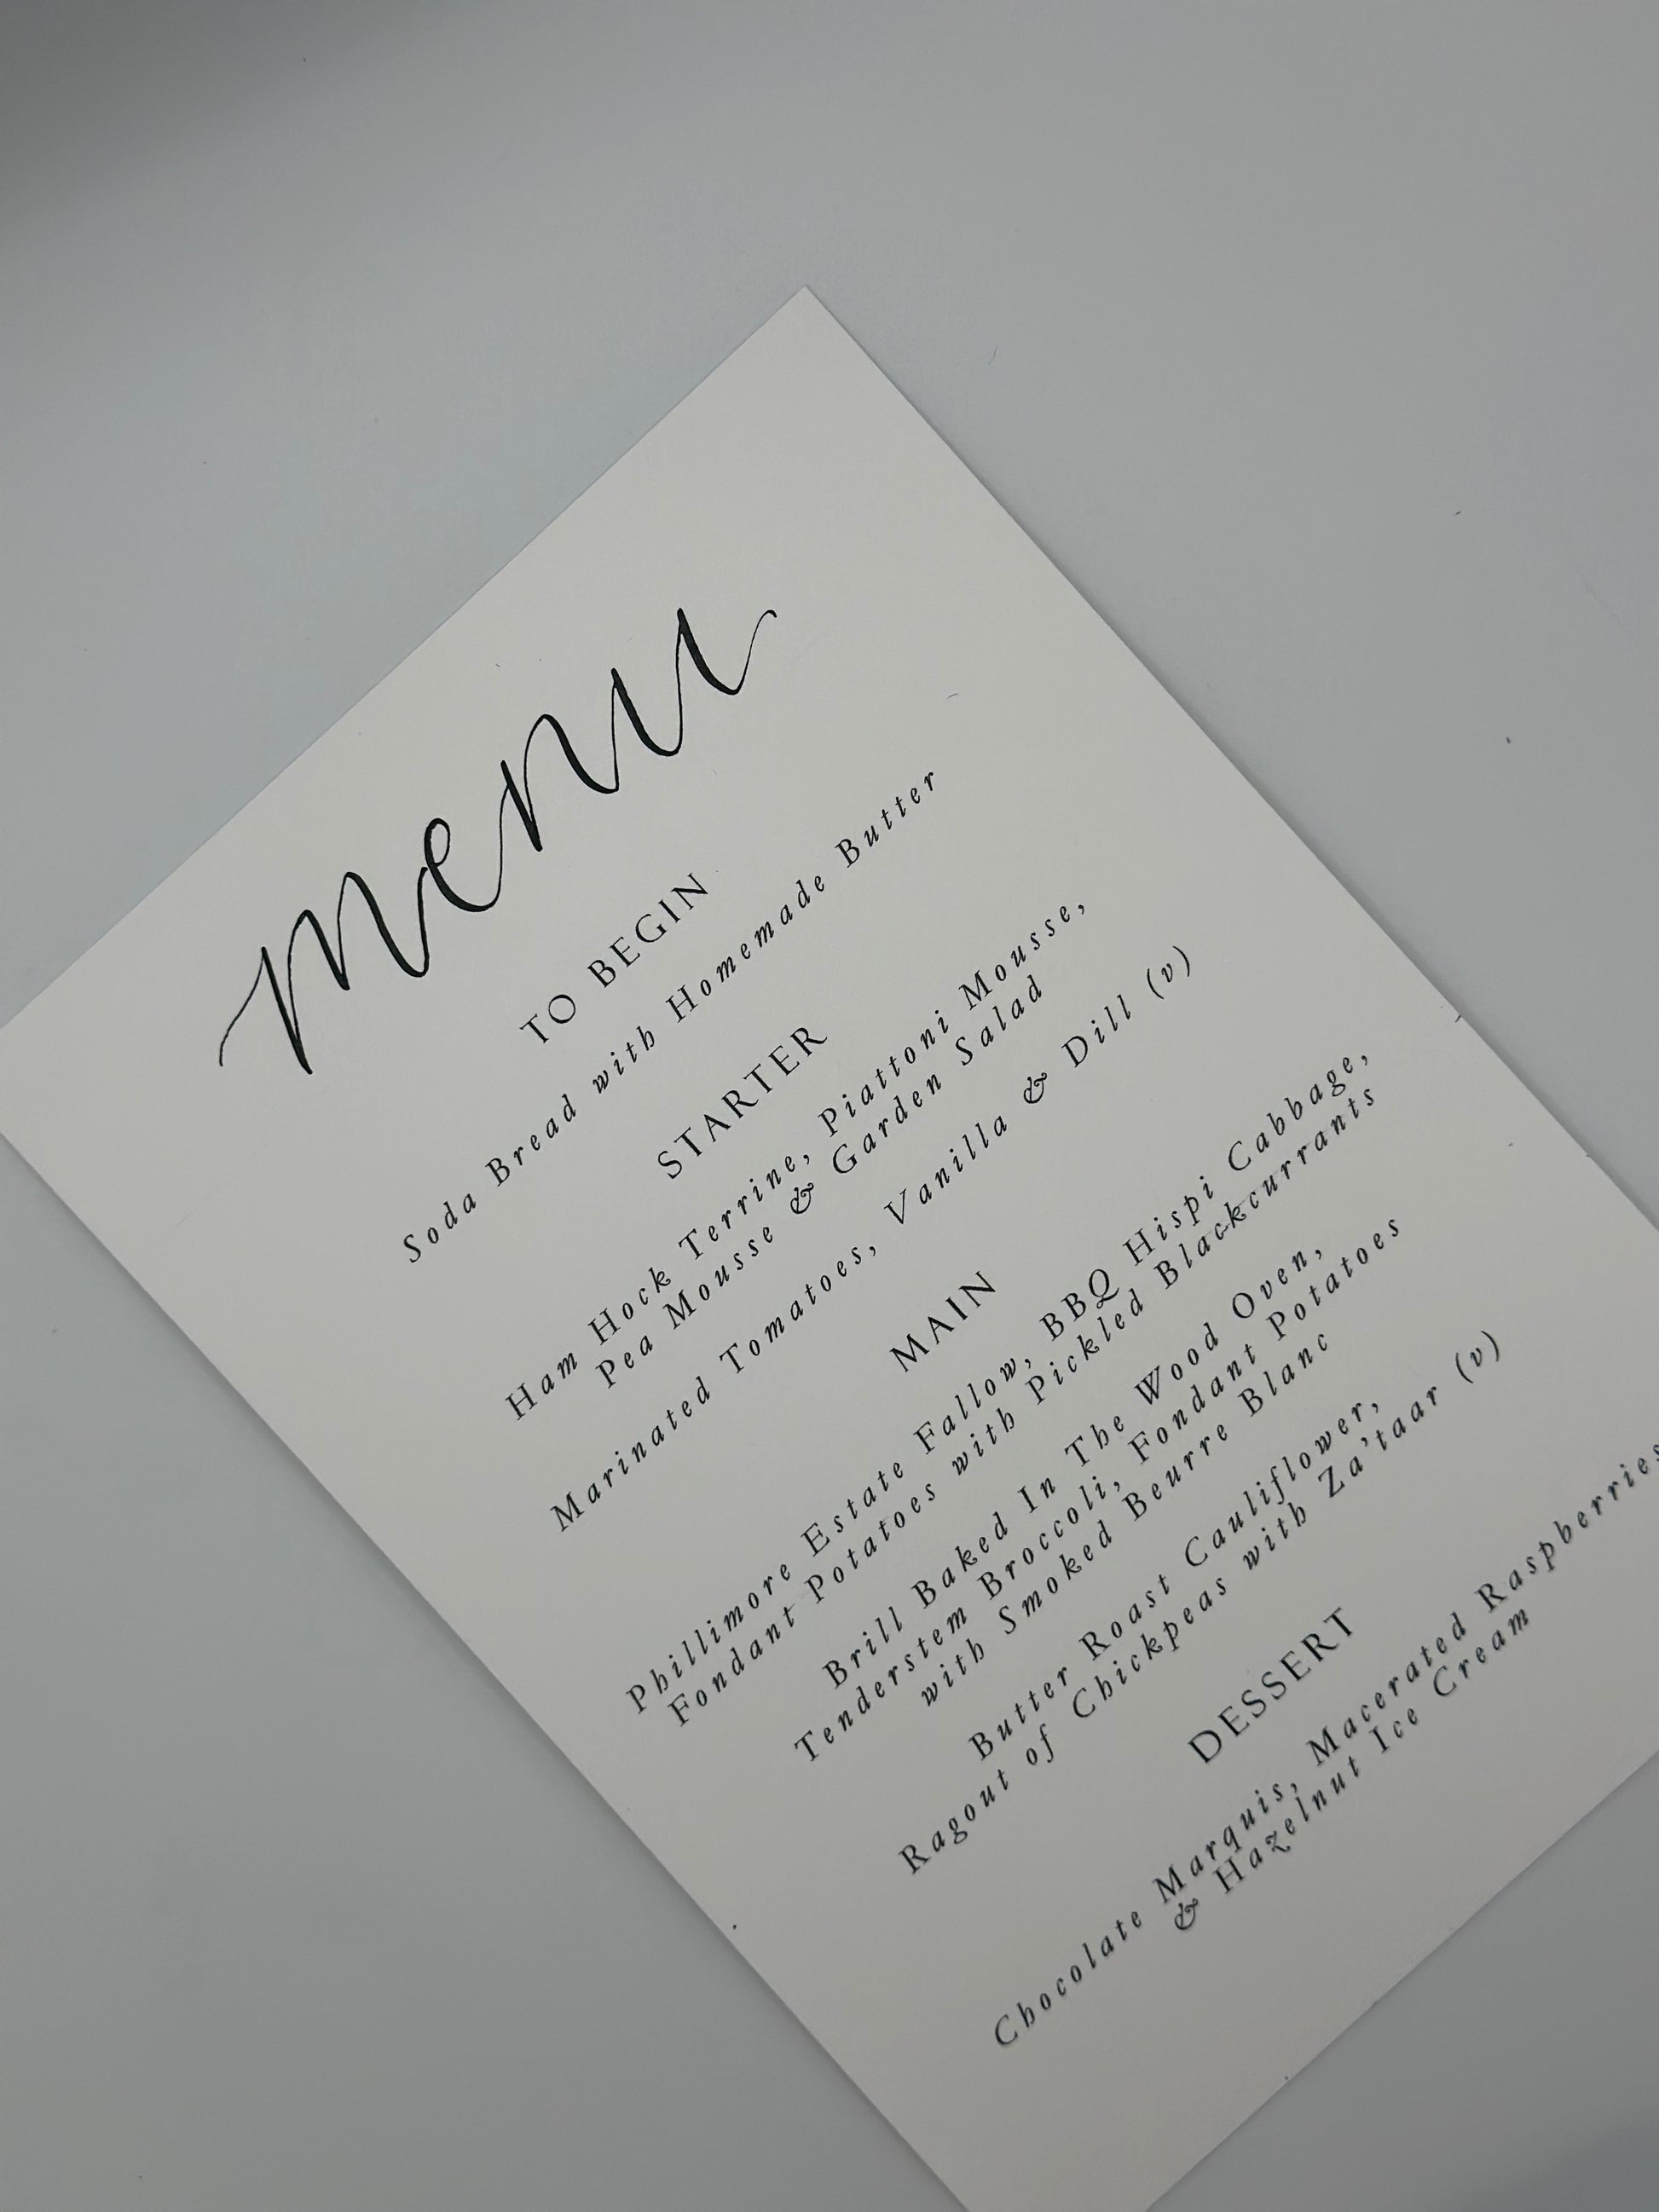 menu
TO BEGIN
Soda Bread with Homemade Butter
STARTER
Ham Hock Terrine, Piattoni Mousse,
Pea Mousse & Garden Salad
Marinated Tomatoes, Vanilla & Dill (v)
MAIN
Phillimore Estate Fallow, BBQ Hispi Cabbage,
Fondant Potatoes with Pickled Blackcurrants
Brill Baked In The Wood Oven,
Tenderstem Broccoli, Fondant Potatoes
with Smoked Beurre Blanc
Butter Roast Cauliflower,
Ragout of Chickpeas with Za'taar (v)
DESSERT
Chocolate Marquis, Macerated Raspberries
& Hazelnut Ice Cream